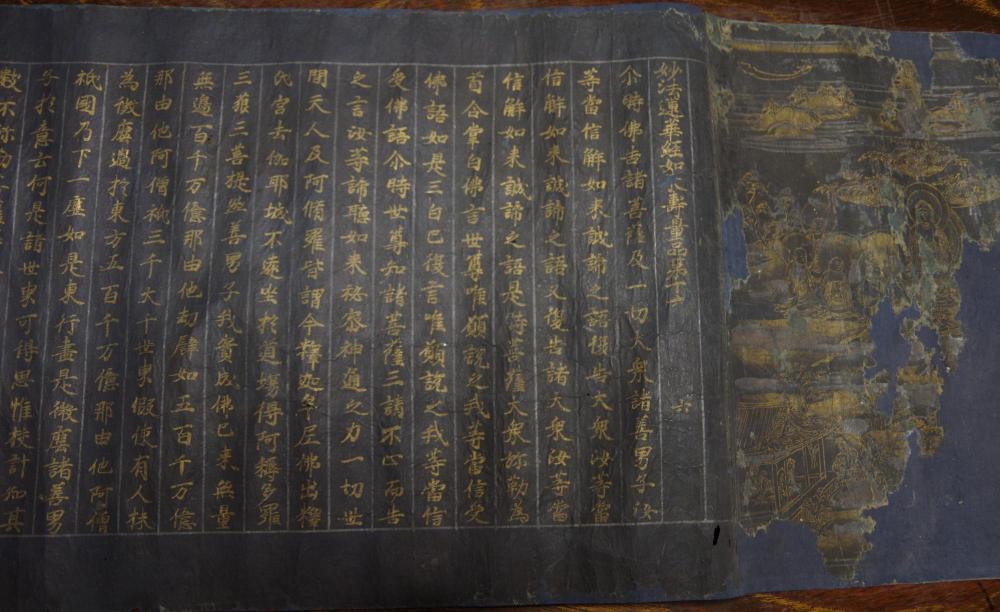 妙法蓮華經如來壽量品第十六 六
尒時佛告諸菩薩及一切大衆諸善男子汝
等當信解如來誠諦之語復告大衆汝等當
信解如來誠諦之語又復告諸大衆汝等當
信解如來誠諦之語是時菩薩大衆弥勒為
首合掌白佛言世尊唯願說之我等當信受
佛語如是三白已復言唯願說之我等當信
受佛語尒時世尊知諸菩薩三請不止而告
之言汝等諦聽如來秘密神通之力一切世
間天人及阿脩羅皆謂今釋迦牟尼佛出釋
氏宮去伽耶城不遠坐於道場得阿耨多羅
三藐三菩提然善男子我實成佛已來無量
無邊百千万億那由他劫譬如五百千万億
那由他阿僧祇三千大千世界假使有人抹
為微塵過於東方五百千万億那由他阿僧
祇國乃下一塵如是東行盡是微塵諸善男
子於意云何是諸世界可得思惟校計知其
數不弥勒